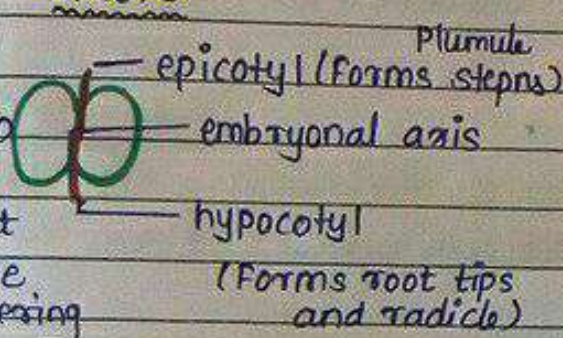 Plumule
epicotyl (Forms stepns)
embryonal axis
t hypocotyl
e (Forms root tips
and radicle)